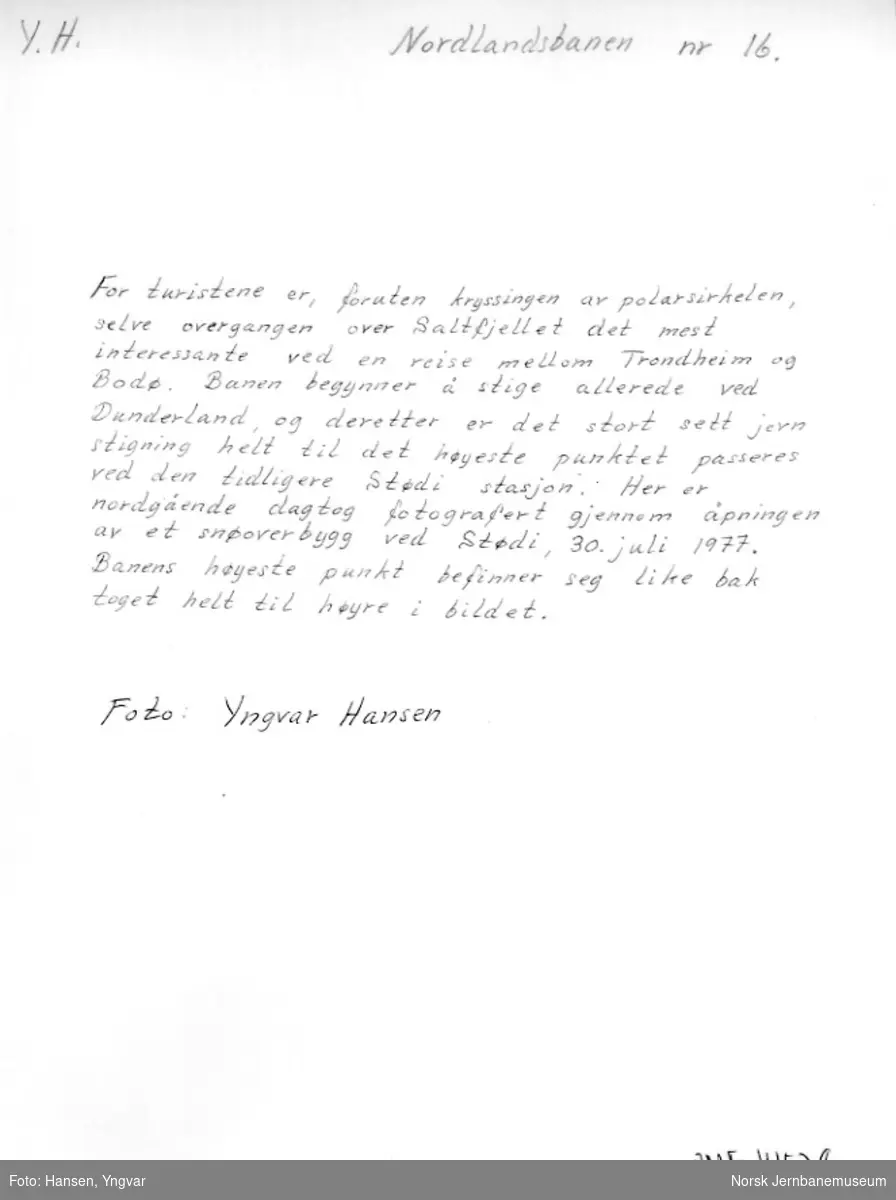 Y. H. Nordlandsbanen nr 16.
For turistene er, foruten kryssingen av polarsirkelen,
selve overgangen over Saltfjellet det mest
interessante ved en reise mellom Trondheim og
Bodø. Banen begynner å stige allerede ved
Dunderland, og deretter er det stort sett jevn
stigning helt til det høyeste punktet passeres
ved den tidligere Stødi stasjon. Her er
nordgående dagtog fotografert gjennom åpningen
av et snøoverbygg ved Stødi, 30. juli 1977.
Banens høyeste punkt befinner seg like bak
toget helt til høyre i bildet.
Foto: Yngvar Hansen
Foto: Hansen, Yngvar Norsk Jernbanemuseum